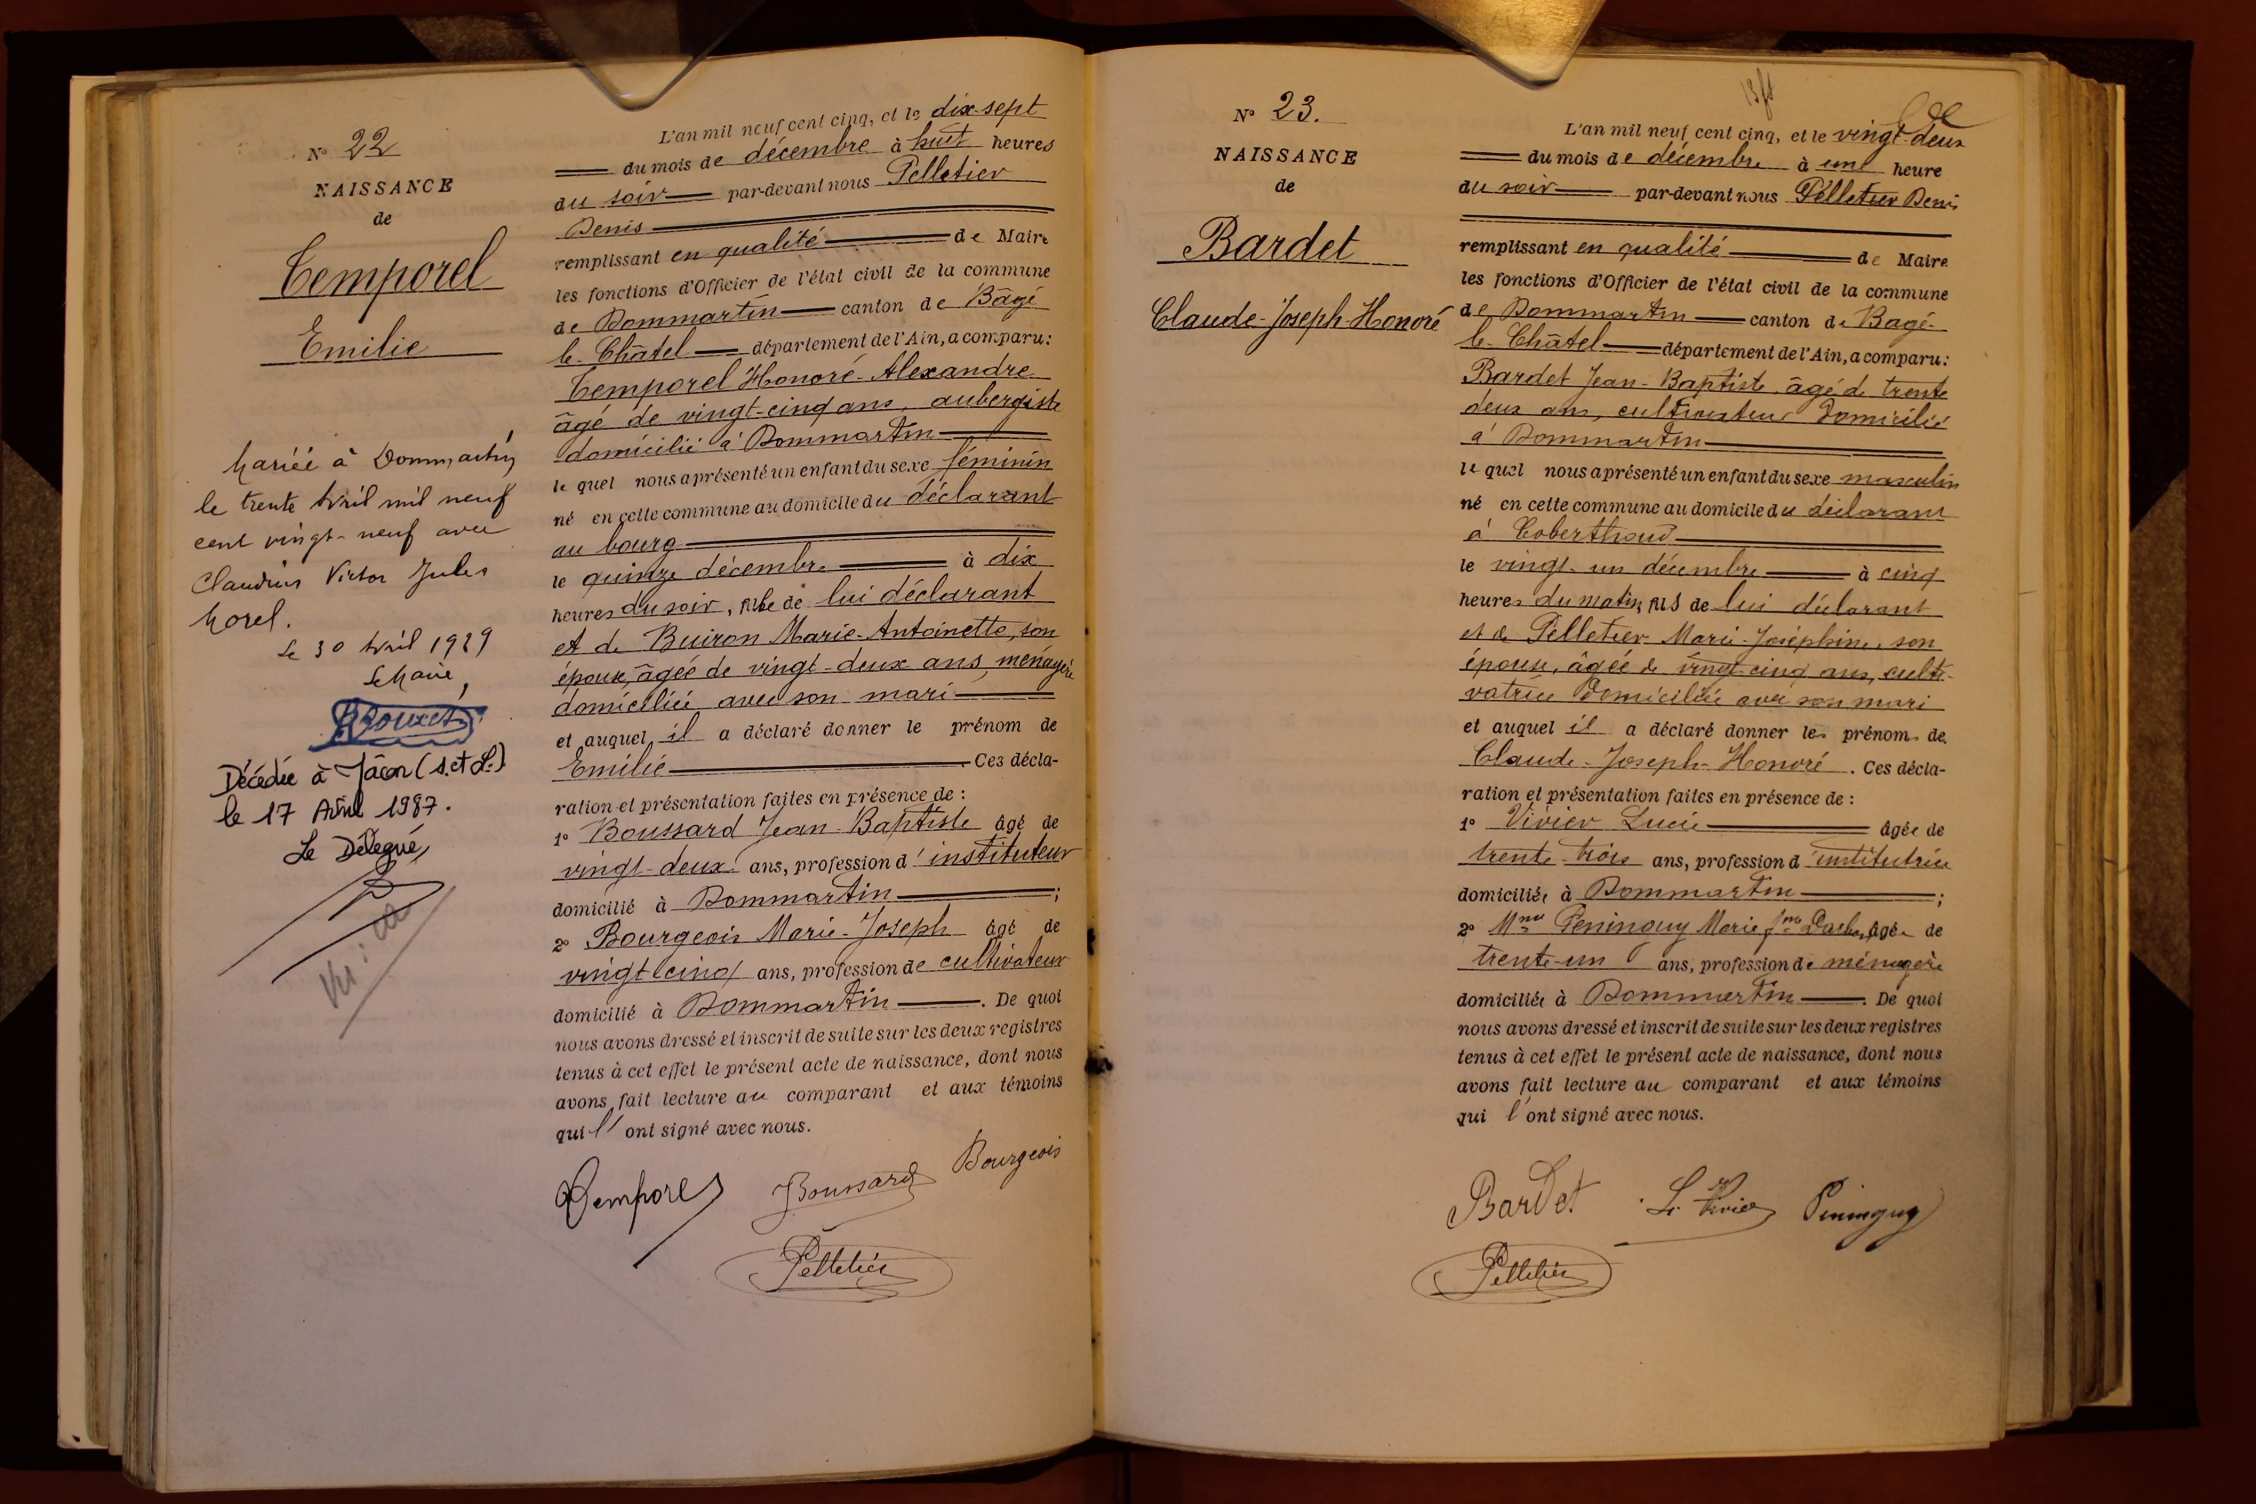 N° 22
NAISSANCE
de
Temporel
Emilie
Mariée à Dommartin
le trente Avril mil neuf
cent vingt-neuf avec
Claudius Victor Jules
Morel.
Le 30 Avril 1929
Le Maire,
Décédée à Mâcon (S. et L.)
le 17 Avril 1987.
Le Délégué,
L'an mil neuf cent cinq, et le dix-sept
du mois de décembre à huit heures
du soir par-devant nous Pelletier
Denis
remplissant en qualité de Maire
les fonctions d'Officier de l'état civil de la commune
de Dommartin canton de Bâgé
le Châtel département de l'Ain, a comparu:
Temporel Honoré-Alexandre
âgé de vingt-cinq ans, aubergiste
domicilié à Dommartin
le quel nous a présenté un enfant du sexe féminin
né en cette commune au domicile du déclarant
au bourg
le quinze décembre à dix
heures du soir, fille de lui déclarant
et de Buiron Marie-Antoinette, son
épouse, âgée de vingt-deux ans, ménagère
domiciliée avec son mari
et auquel il a déclaré donner le prénom de
Emilie. Ces décla-
ration et présentation faites en présence de :
1° Boussard Jean-Baptiste âgé de
vingt-deux ans, profession d'instituteur
domicilié à Dommartin ;
2° Bourgeois Marie-Joseph âgé de
vingt cinq ans, profession de cultivateur
domicilié à Dommartin. De quoi
nous avons dressé et inscrit de suite sur les deux registres
tenus à cet effet le présent acte de naissance, dont nous
avons fait lecture au comparant et aux témoins
qui l'ont signé avec nous.
Temporel Boussard Bourgeois
Pelletier
N° 23.
NAISSANCE
de
Bardet
Claude-Joseph-Honoré
L'an mil neuf cent cinq, et le vingt-deux
du mois de décembre à une heure
du soir par-devant nous Pelletier Denis
remplissant en qualité de Maire
les fonctions d'Officier de l'état civil de la commune
de Dommartin canton de Bagé-
le-Châtel département de l'Ain, a comparu:
Bardet Jean-Baptiste, âgé de trente
deux ans, cultivateur domicilié
à Dommartin
le quel nous a présenté un enfant du sexe masculin
né en cette commune au domicile du déclarant
à Coberthoud
le vingt-un décembre à cinq
heures du matin, fils de lui déclarant
et de Pelletier Marie-Joséphine, son
épouse, âgée de vingt-cinq ans, culti-
vatrice domiciliée avec son mari
et auquel il a déclaré donner les prénoms de
Claude-Joseph-Honoré. Ces décla-
ration et présentation faites en présence de :
1° Vivier Lucie âgée de
trente-trois ans, profession d'institutrice
domiciliée à Dommartin ;
2° Mme Peninguy Marie âgée de
trente-un ans, profession de ménagère
domiciliée à Dommartin. De quoi
nous avons dressé et inscrit de suite sur les deux registres
tenus à cet effet le présent acte de naissance, dont nous
avons fait lecture au comparant et aux témoins
qui l'ont signé avec nous.
Bardet L. Vivier Peninguy
Pelletier